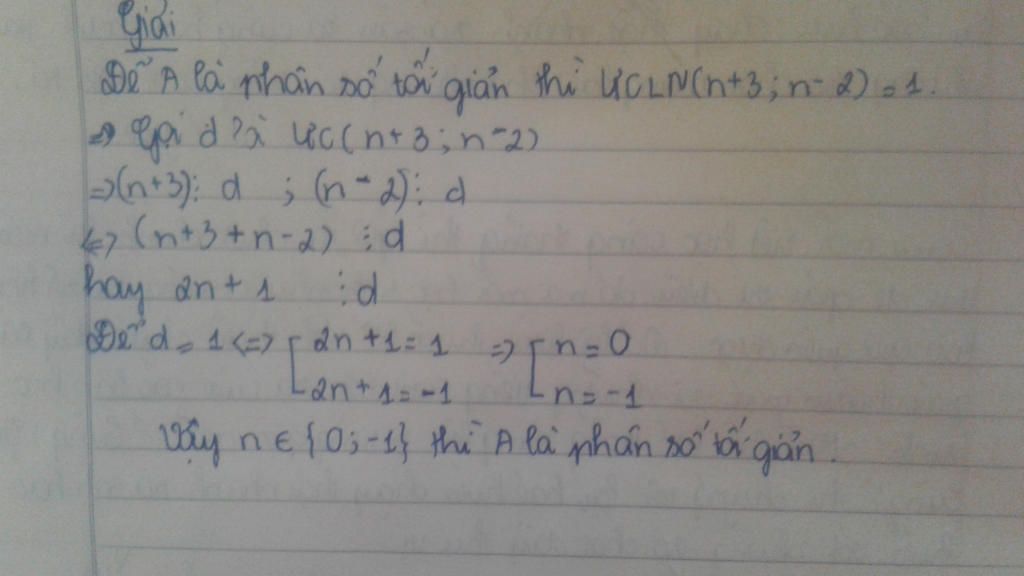 Giải
Để A là phân số tối giản thì ƯCLN(n+3; n-2) = 1.
=> Gọi d là ƯC(n+3; n-2)
=> (n+3) ⋮ d ; (n-2) ⋮ d
<=> (n+3+n-2) ⋮ d
hay 2n+1 ⋮ d
Để d = 1 <=> [ 2n+1 = 1 => [ n = 0
2n+1 = -1 n = -1
Vậy n ∈ {0; -1} thì A là phân số tối giản.